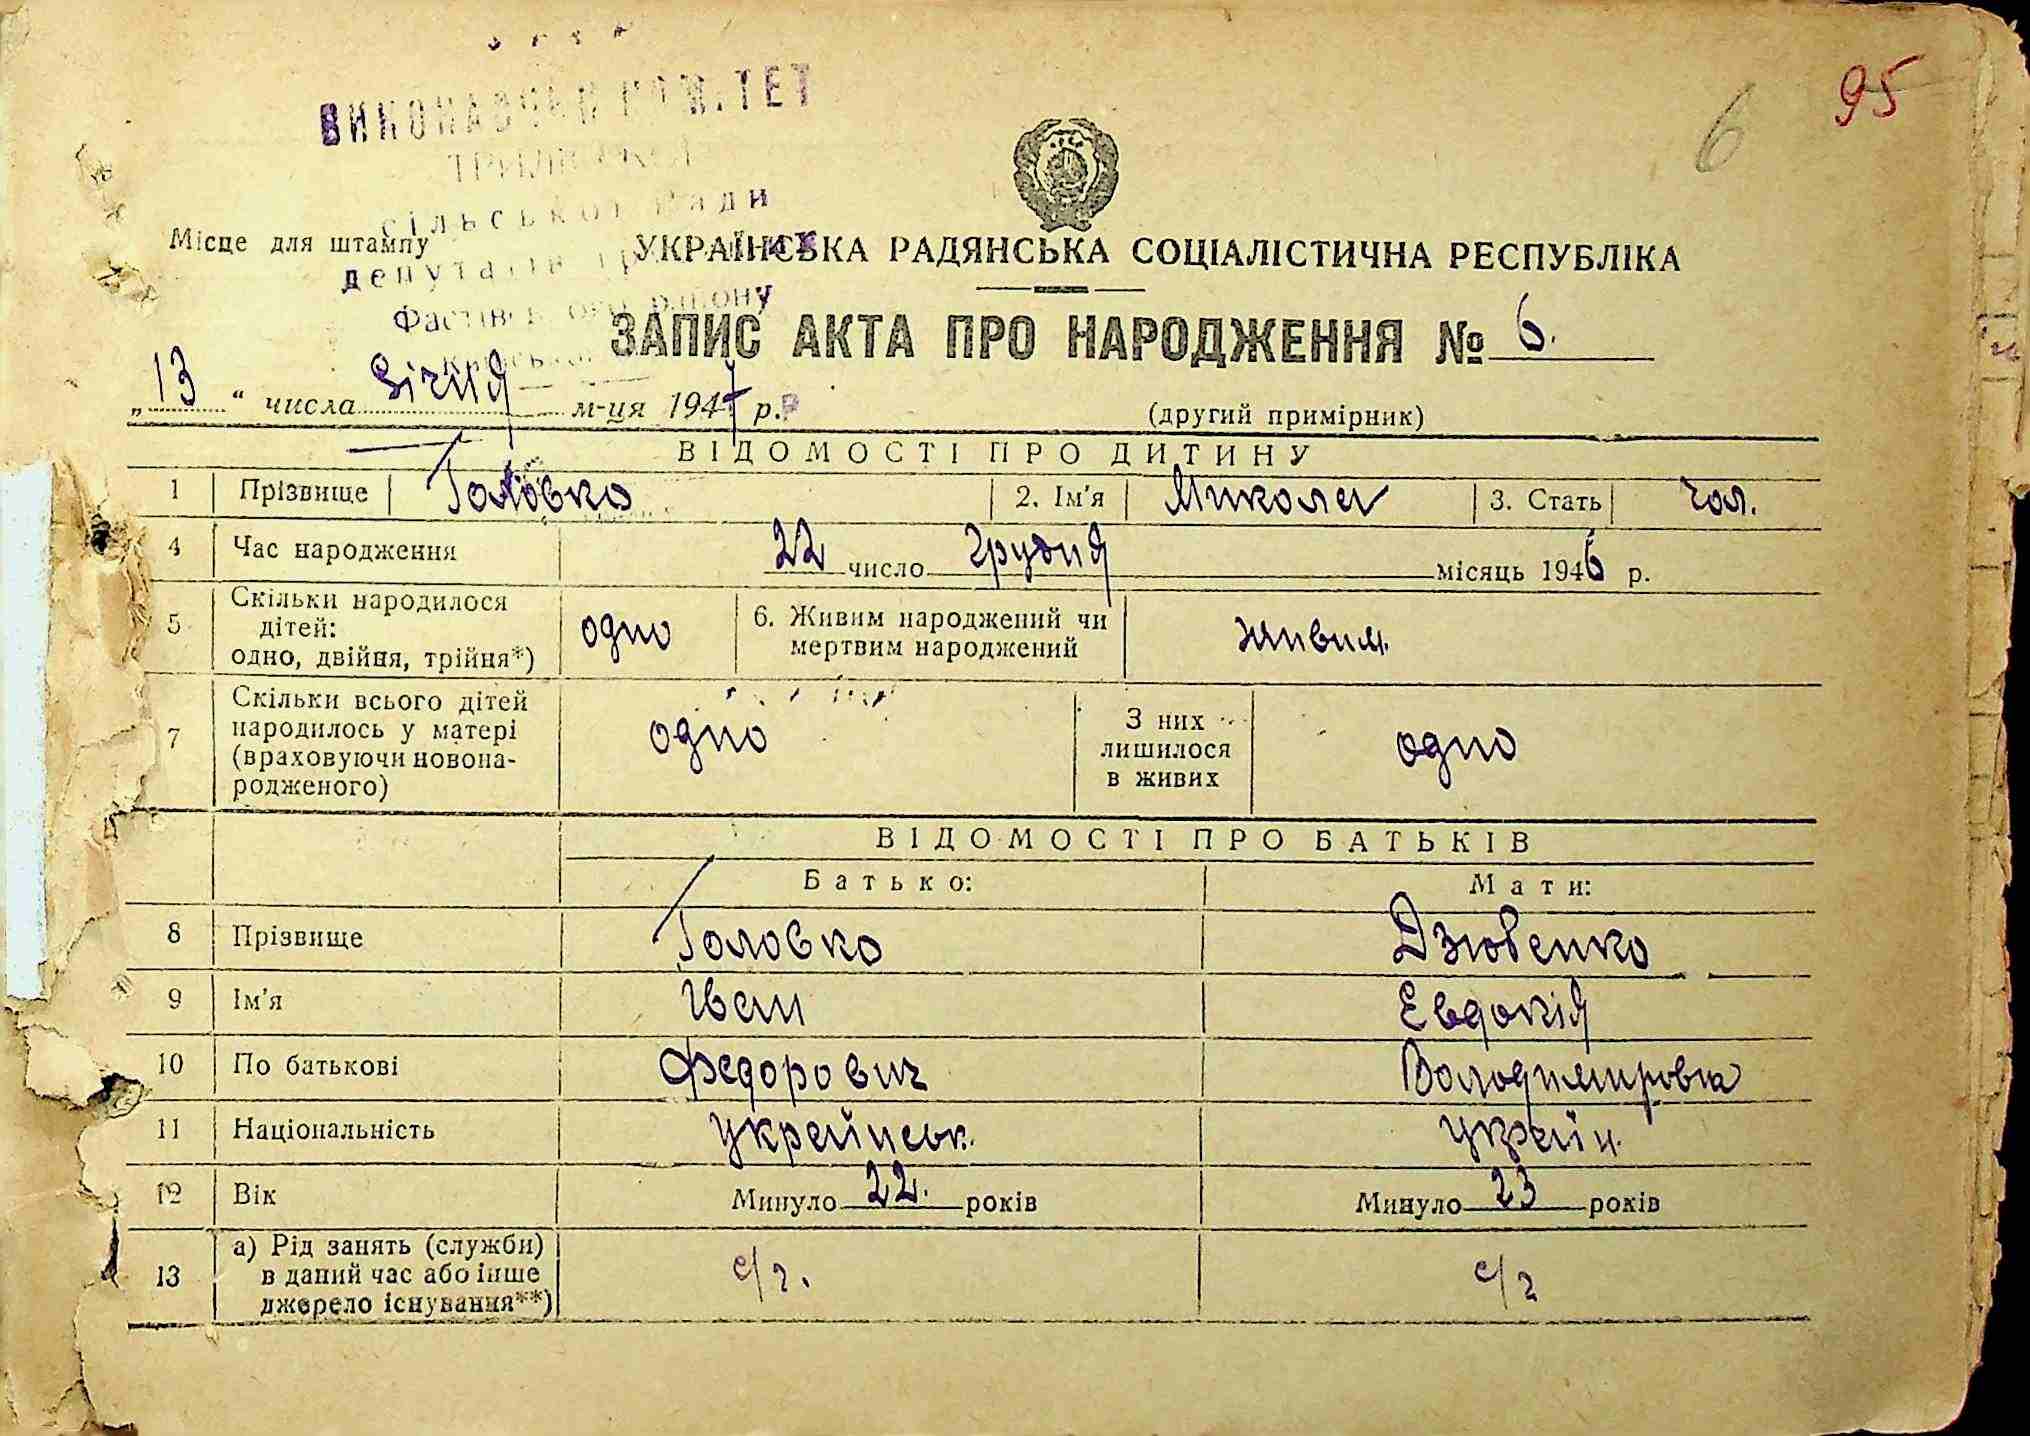 95
6
ВИКОНАВЧИЙ КОМІТЕТ
сільської Ради
Місце для штампу
депутатів
УКРАЇНСЬКА РАДЯНСЬКА СОЦІАЛІСТИЧНА РЕСПУБЛІКА
Фастівського району
ЗАПИС АКТА ПРО НАРОДЖЕННЯ № 6.
„13“ числа січня м-ця 1947 р.
(другий примірник)
ВІДОМОСТІ ПРО ДИТИНУ
1 Прізвище Головко 2. Ім'я Микола 3. Стать чол.
4 Час народження 22 число грудня місяць 1946 р.
5 Скільки народилося дітей: одно, двійня, трійня*) одно 6. Живим народжений чи мертвим народжений живим.
7 Скільки всього дітей народилось у матері (враховуючи новонародженого) одно З них лишилося в живих одно
ВІДОМОСТІ ПРО БАТЬКІВ
Батько: Мати:
8 Прізвище Головко Дзюбенко
9 Ім'я Іван Евдокія
10 По батькові Федорович Володимировна
11 Національність українськ. україн.
12 Вік Минуло 22. років Минуло 23 років
13 а) Рід занять (служби) в даний час або інше джерело існування**) с/г. с/г